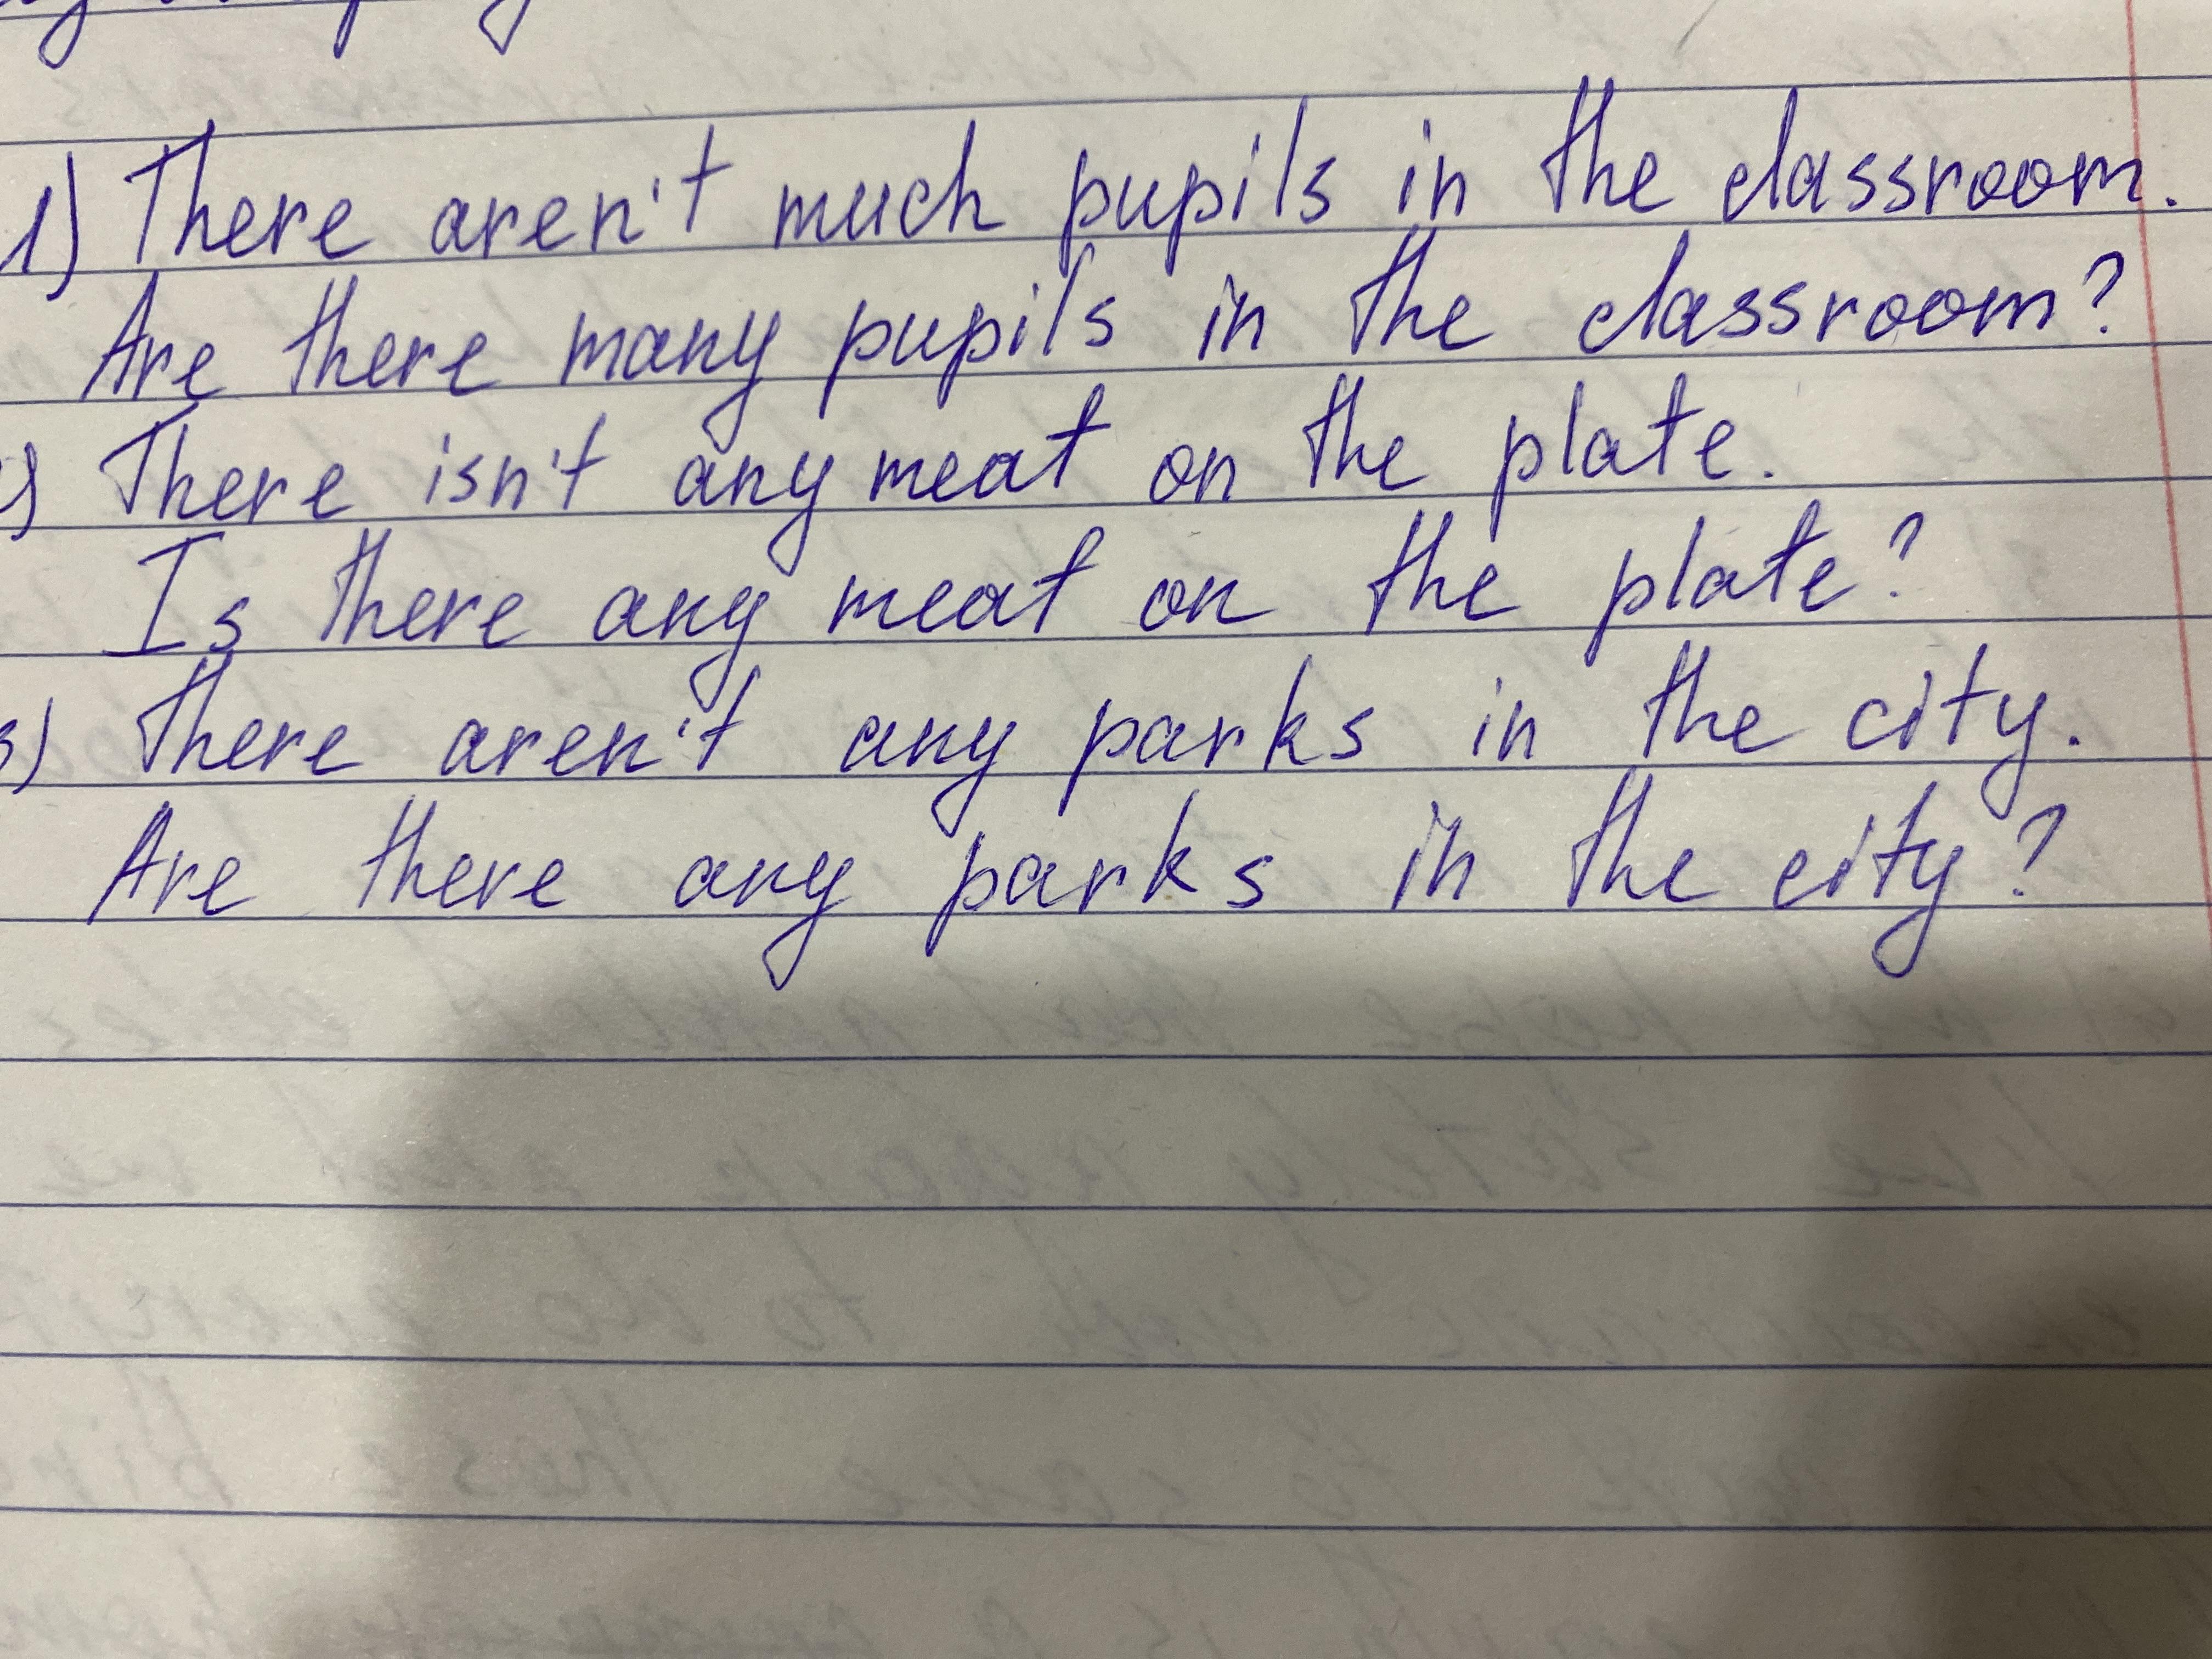 1) There aren't much pupils in the classroom.
Are there many pupils in the classroom?
) There isn't any meat on the plate.
Is there any meat on the plate?
3) There aren't any parks in the city.
Are there any parks in the city?